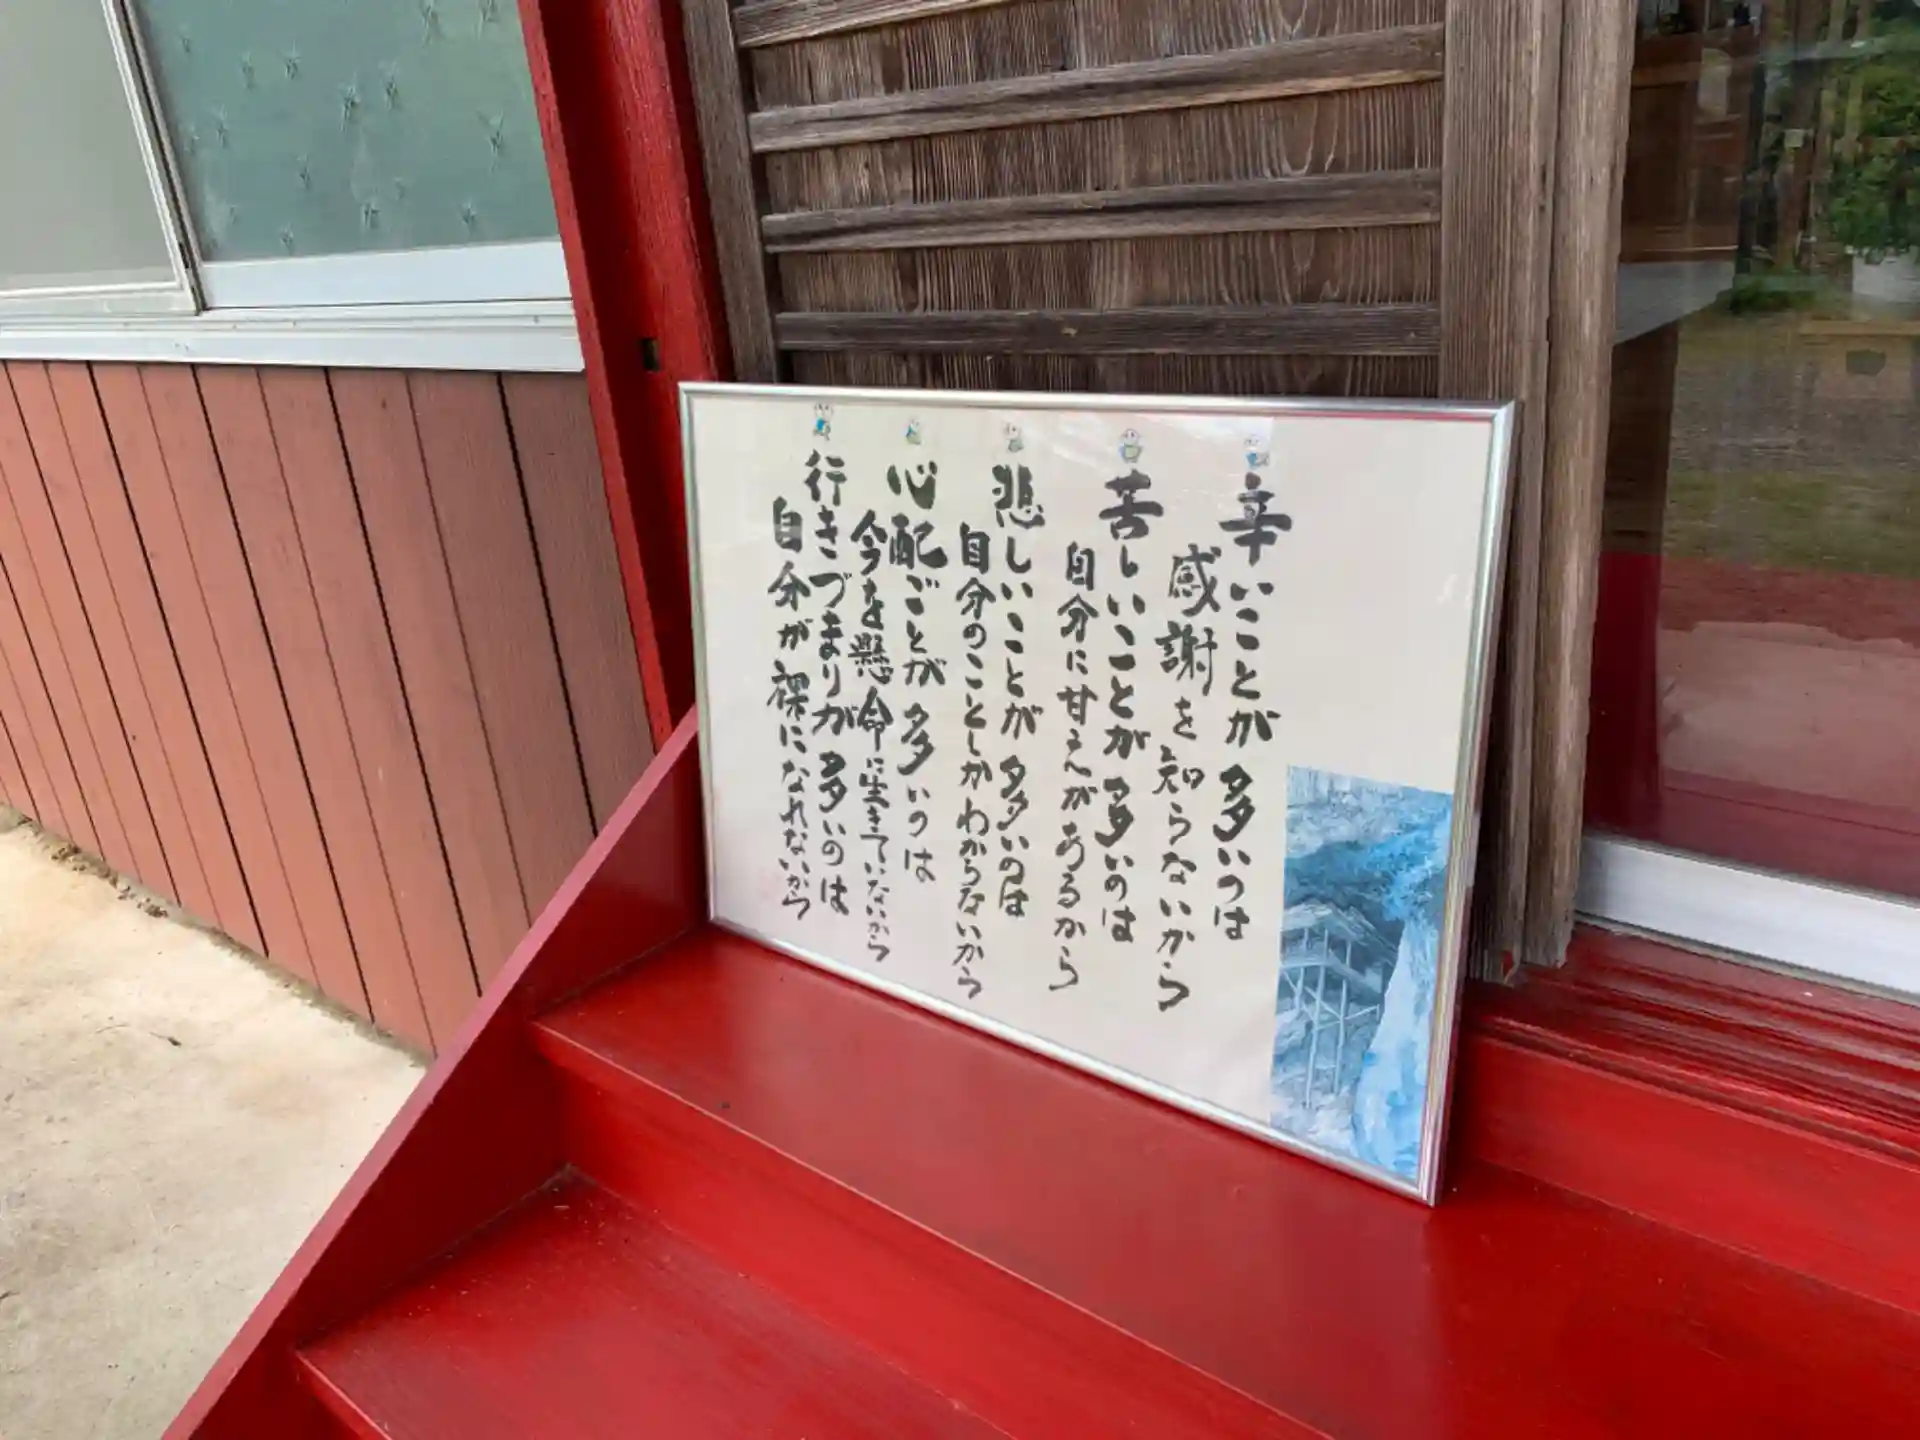 辛いことが多いのは
感謝を知らないから
苦しいことが多いのは
自分に甘えがあるから
悲しいことが多いのは
自分のことしかわからないから
心配ごとが多いのは
今を懸命に生きていないから
行きづまりが多いのは
自分が裸になれないから